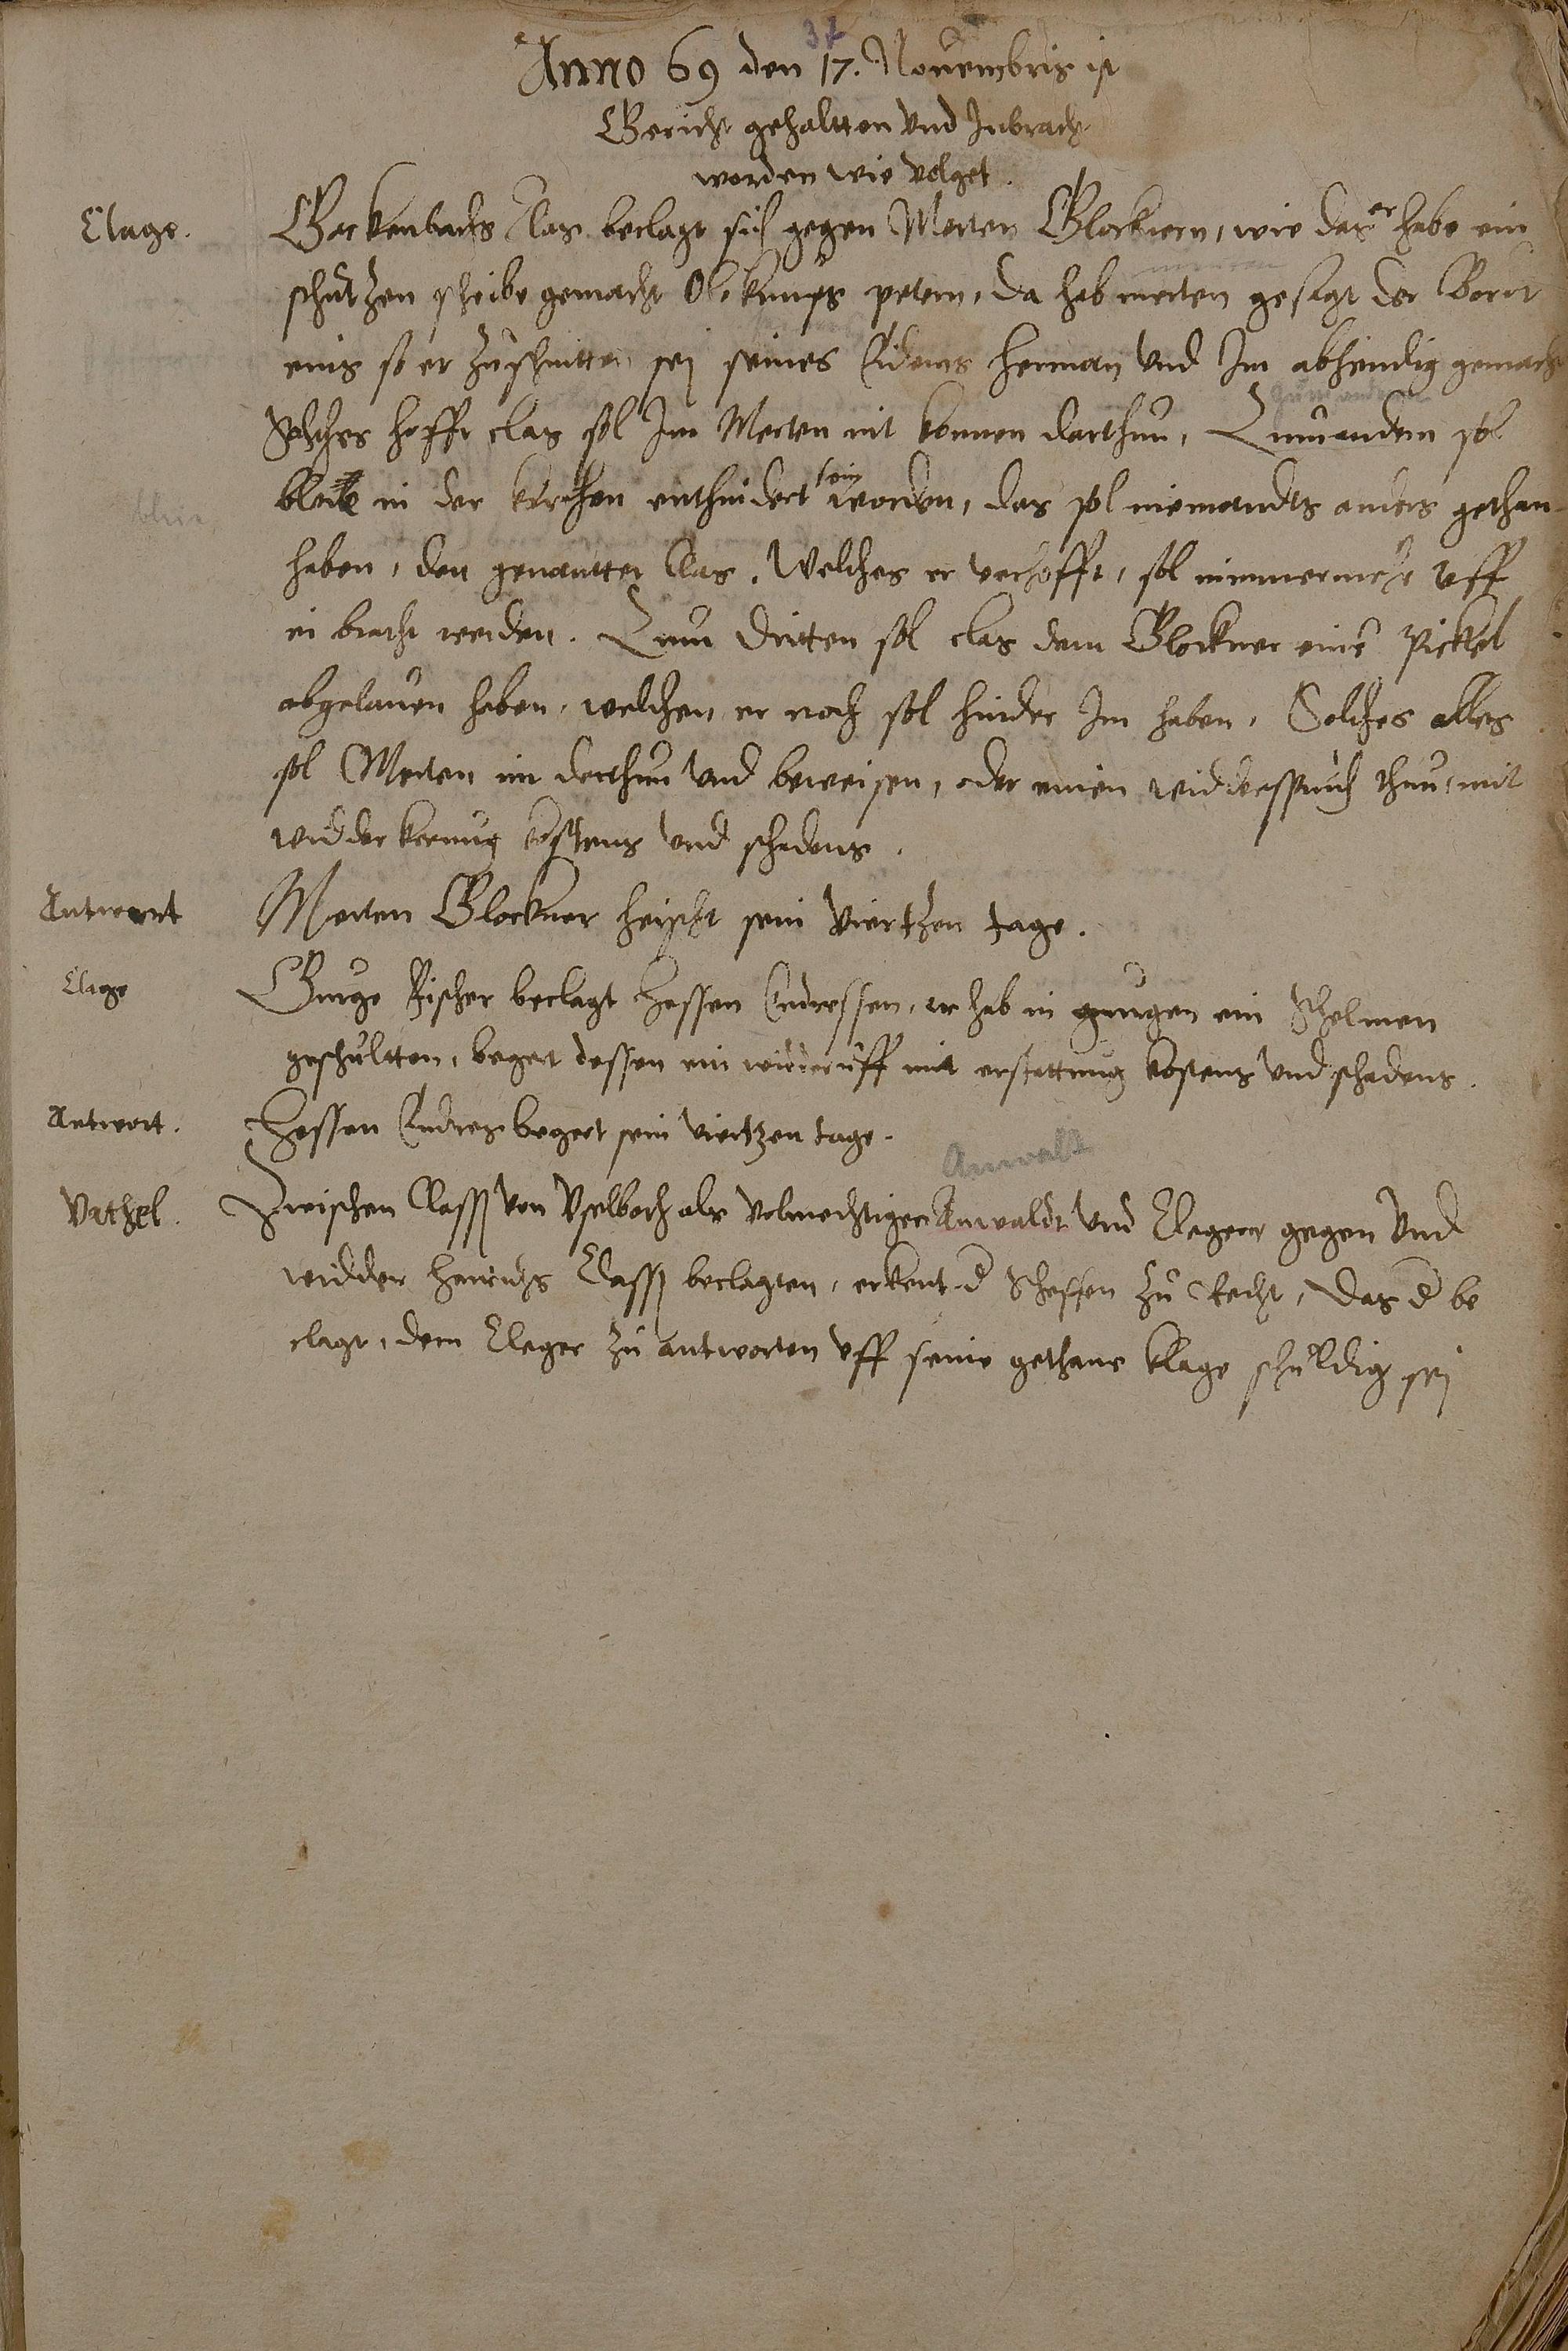 37
Anno 69 den 17. Nouembris ist
Gericht gehaltten vnd Inbracht
worden wie volget.
Clage. Gackenbachs Clas beclagt sich gegen Merten Glocknern, wie das er habe ein
schutzen scheibe gemacht peterm, da hab merten gesagt der Bortt
eins so er zuschnitten sej seines Eidems Herman vnd Im abhendig gemacht
Zum andern
Solches hofft clas sol Im Merten nit konnen darthun, Zum andern sol
bley
bleie in der kirchen enthindert sein worden, das sol niemandts anders gethan
haben, den genantter Clas. Welches er verhofft, sol nimmermehr vff
in bracht werden. Zum dritten sol clas dem Glockner eine pickel
abgelauen haben, welchen er noch sol hinder Im haben, Solches alles
sol Merten im darthun vnd beweisen, oder einen widderspruch thun, mit
widderkerung kostens vnd schadens.
Antwort Merten Glockner heischt sein viertzen tage.
Clage Gurge Fischer beclagt Hessen Endressen, er hab in gurgen ein Schelmen
geschultten, begert dessen ein widderuff mit erstattung kostens vnd schadens.
Antwort. Hessen Endres begert sein viertzen tage.
Anwalt
Vrthel. Zwischen Class von Vselbach als volmechtiger Anwaldt vnd Clegern gegen vnd
widder Henrichs Class beclagten, erkent d Scheffen zu Recht, das d be
clagt, dem Cleger zu antworten vff seine gethane klage schuldig sej